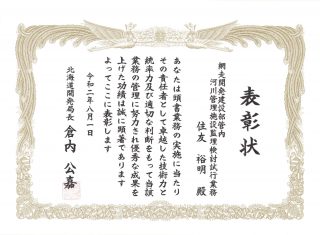 表彰状
網走開発建設部管内
河川管理施設監理検討試行業務
住友 裕明 殿
あなたは頭書業務の実施に当たり
その責任者として卓越した技術力と
統率力及び適切な判断をもって当該
業務の管理に努力され優秀な成果を
上げた功績は誠に顕著であります
よってここに表彰します
令和二年八月一日
北海道開発局長 倉内 公嘉